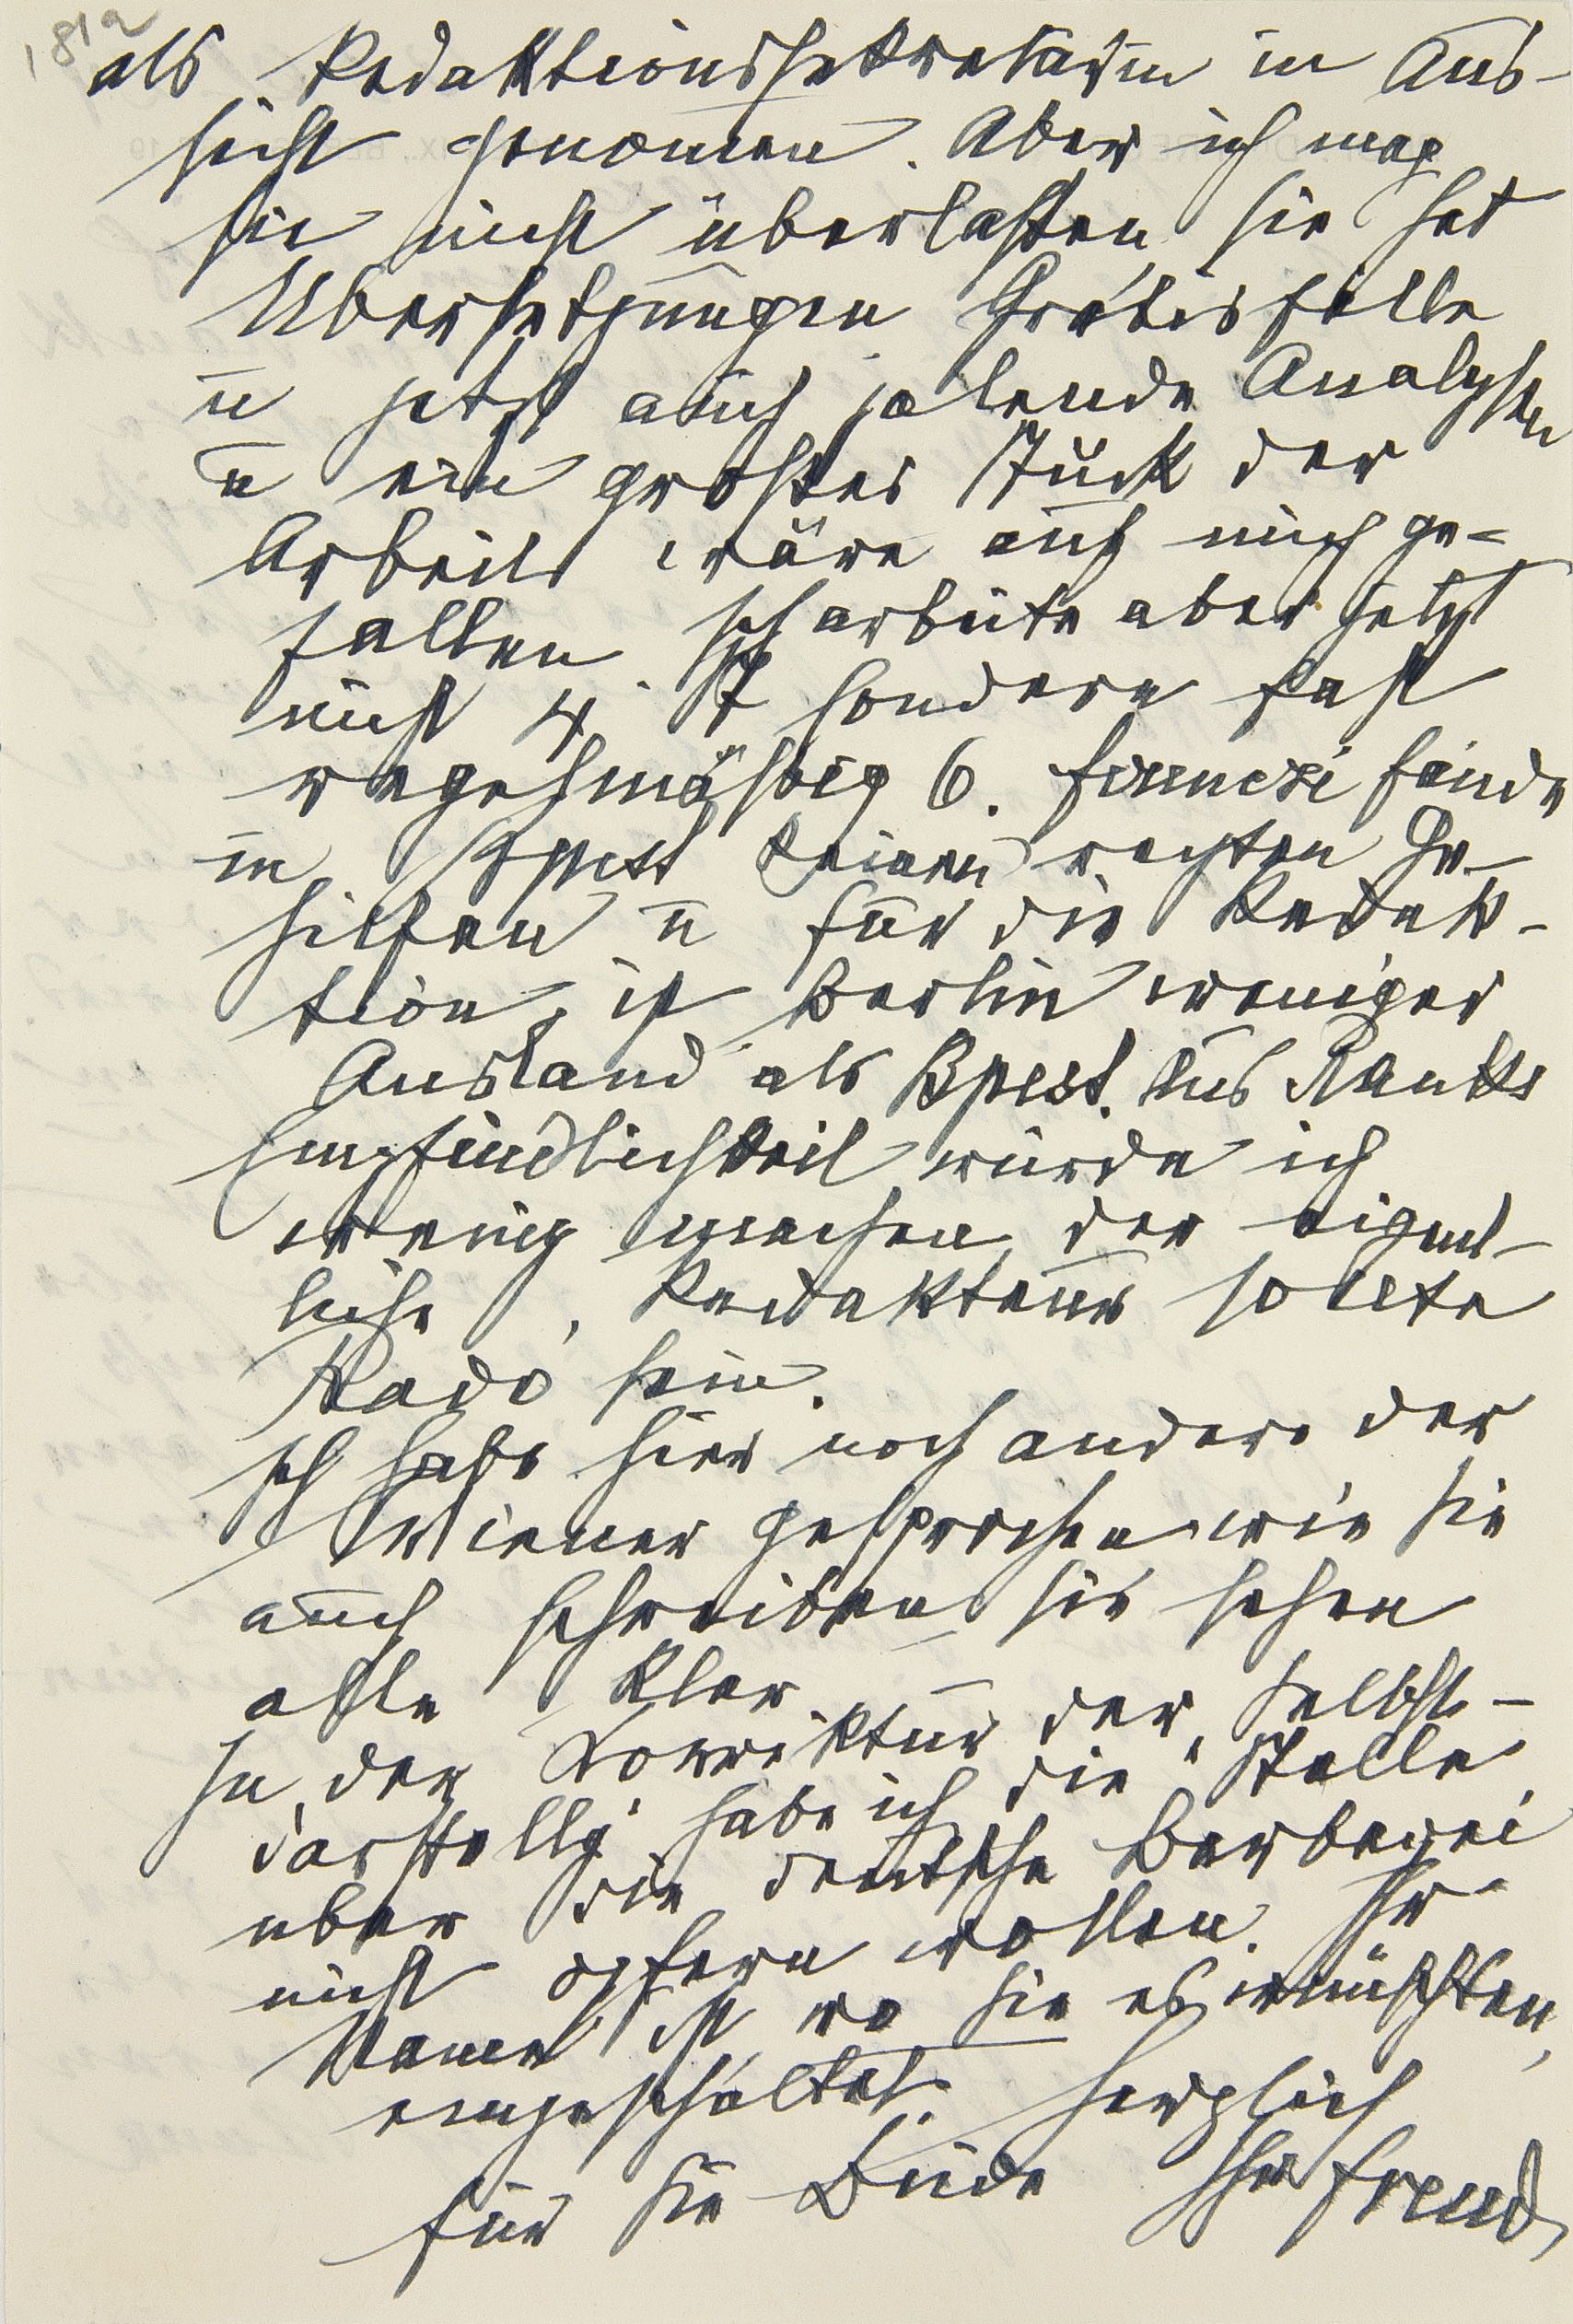 181a
als Redaktionssekretärin in Aus-
sicht genomen. Aber ich mag
sie nicht überlasten, sie hat
Übersetzungen, Gratisfälle
u jetzt auch zalende Analysen
u ein großes Stück der
Arbeit wäre auf mich ge-
fallen. Ich arbeite aber jetzt
nicht 4 St sondern fast
regelmäßig 6. Ferenczi fände
in Bpest keinen rechten Ge-
hilfen u für die Redak-
tion ist Berlin weniger
Ausland als Bpest. Aus Ranks
Empfindlichkeit würde ich
wenig machen, der eigent-
liche Redakteur sollte
Radó sein.
Ich habe hier noch andere der
Wiener gesprochen wie Sie
auch schreiben, sie sehen
alle klar.
In der Korrektur der „Selbst-
darstellg" habe ich die Stelle
über die deutsche Barbarei
nicht opfern wollen. Ihr
Name ist, wo Sie es wünschten,
eingeschaltet. Herzlich
für Sie Beide Ihr Freud